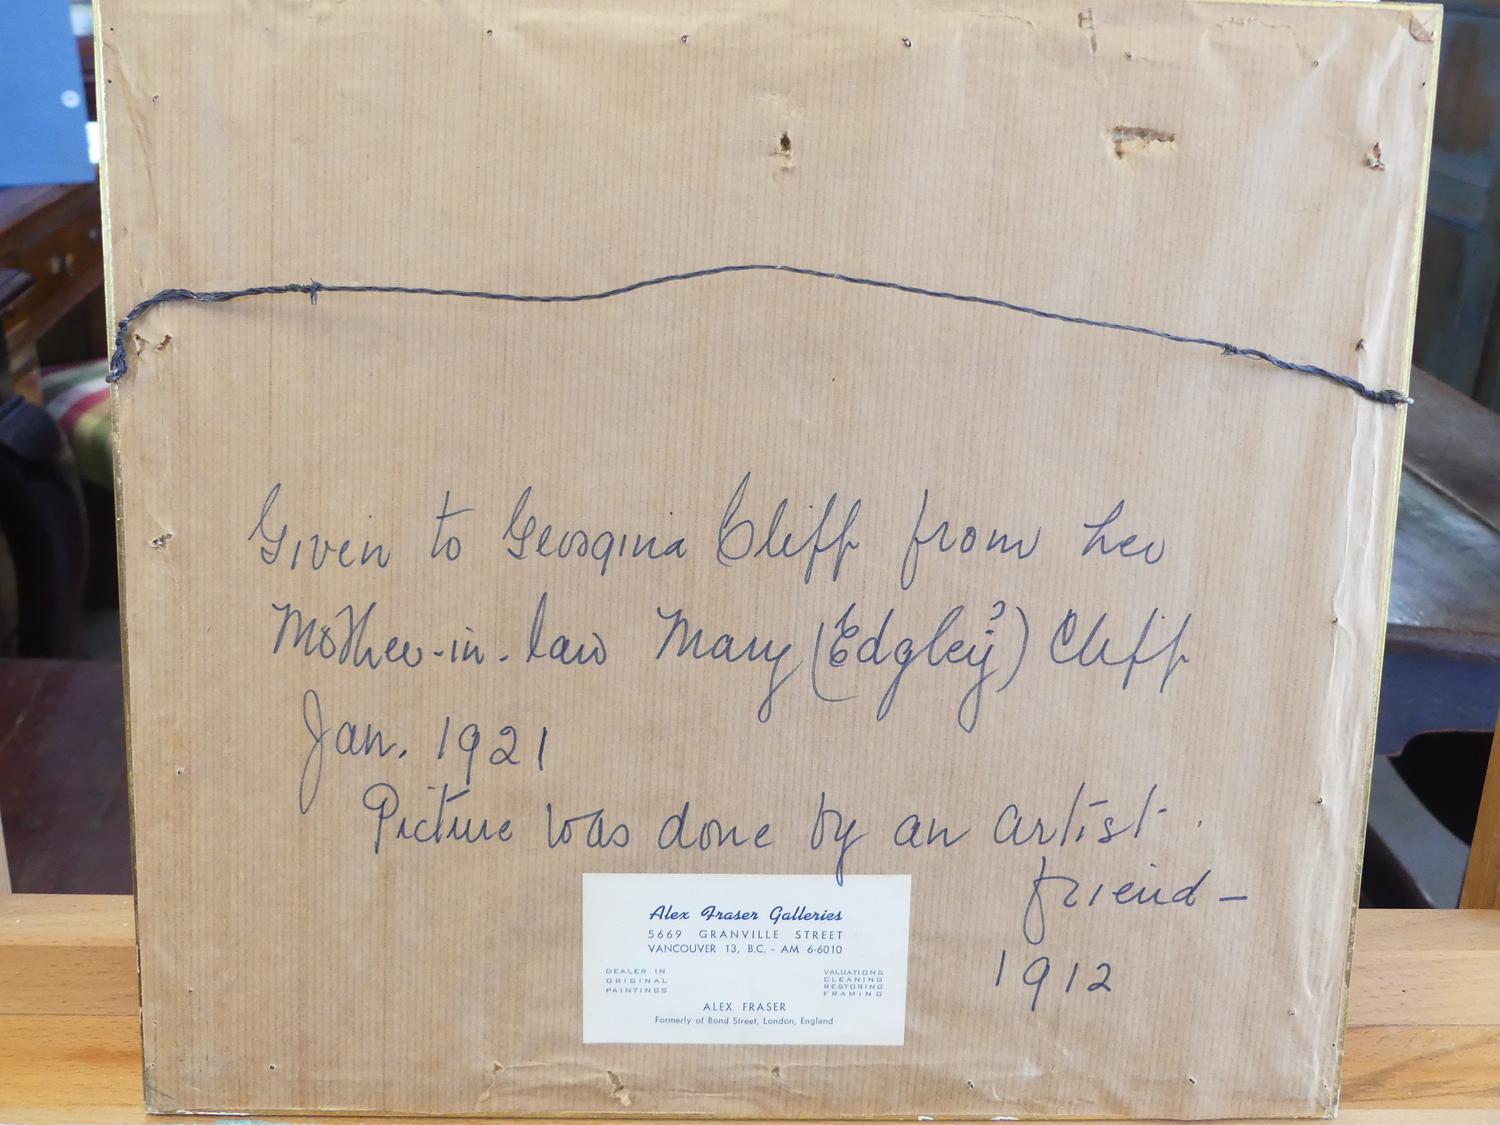 Given to Georgina Cliff from her
Mother-in-law Mary (Edgley?) Cliff
Jan. 1921
Picture was done by an artist
friend-
1912
Alex Fraser Galleries
5669 GRANVILLE STREET
VANCOUVER 13, B.C. - AM 6-6010
DEALER IN
ORIGINAL
PAINTINGS
VALUATIONS
CLEANING
RESTORING
FRAMING
ALEX FRASER
Formerly of Bond Street, London, England